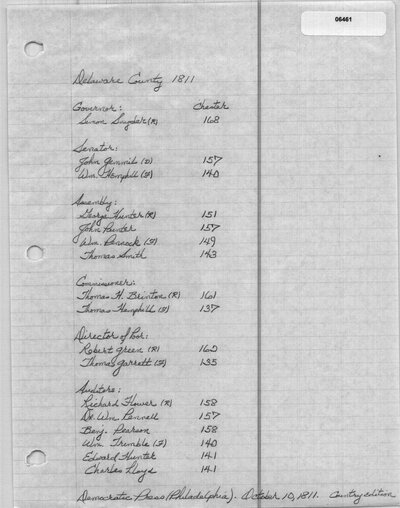 06461
Delaware County 1811
Governor: Chester
Simon Snyder (R) 168
Senator:
John Gemmil (D) 157
Wm. Hemphill (F) 140
Assembly:
George Hunter (R) 151
John Painter 157
Wm. Pennock (F) 149
Thomas Smith 143
Commissioner:
Thomas H. Brinton (R) 161
Thomas Hemphill (F) 137
Director of Poor:
Robert Green (R) 162
Thomas Garrett (F) 135
Auditors:
Richard Flower (R) 158
Dr. Wm. Pennell 157
Benj. Pearson 158
Wm. Trimble (F) 140
Edward Hunter 141
Charles Lloyd 141
Democratic Press (Philadelphia). October 10, 1811. Country edition